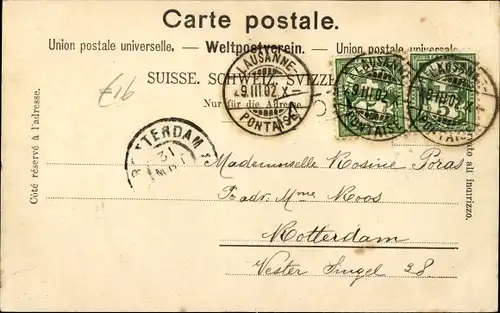 Carte postale.
Union postale universelle. — Weltpostverein. — Union postale universale
SUISSE. SCHWEIZ. SVIZZE
Nur für die Adresse.
Côté réservé à l'adresse.
LAUSANNE
29.III.02. X
PONTAISE
LAUSANNE
29.III.02. X
PONTAISE
LAUSANNE
29.III.02. X
PONTAISE
ROTTERDAM
Mademoiselle Rosine Poras
adr. Mme Roos
Rotterdam
Vester Singel 28.
all' indirizzo.